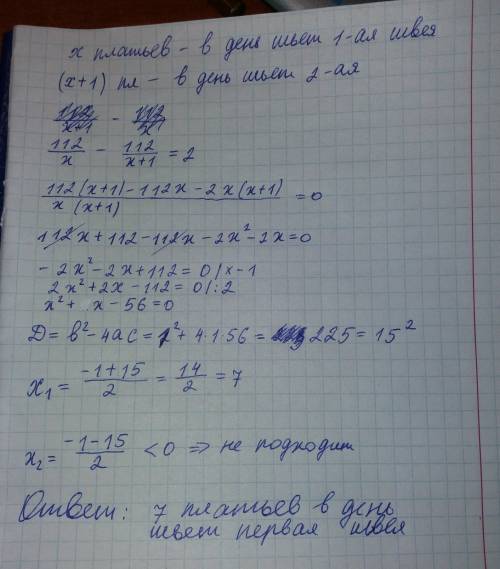 x платьев - в день шьет 1-ая швея
(x+1) пл - в день шьет 2-ая
112/x - 112/(x+1) = 2
(112(x+1)-112x-2x(x+1))/(x(x+1)) = 0
112x+112-112x-2x²-2x=0
-2x²-2x+112=0 |x-1
2x²+2x-112=0 |:2
x²+ x-56=0
D= b²-4ac= 1²+4·1·56= 225= 15²
x₁= (-1+15)/2 = 14/2 = 7
x₂= (-1-15)/2 <0 => не подходит
Ответ: 7 платьев в день
шьет первая швея